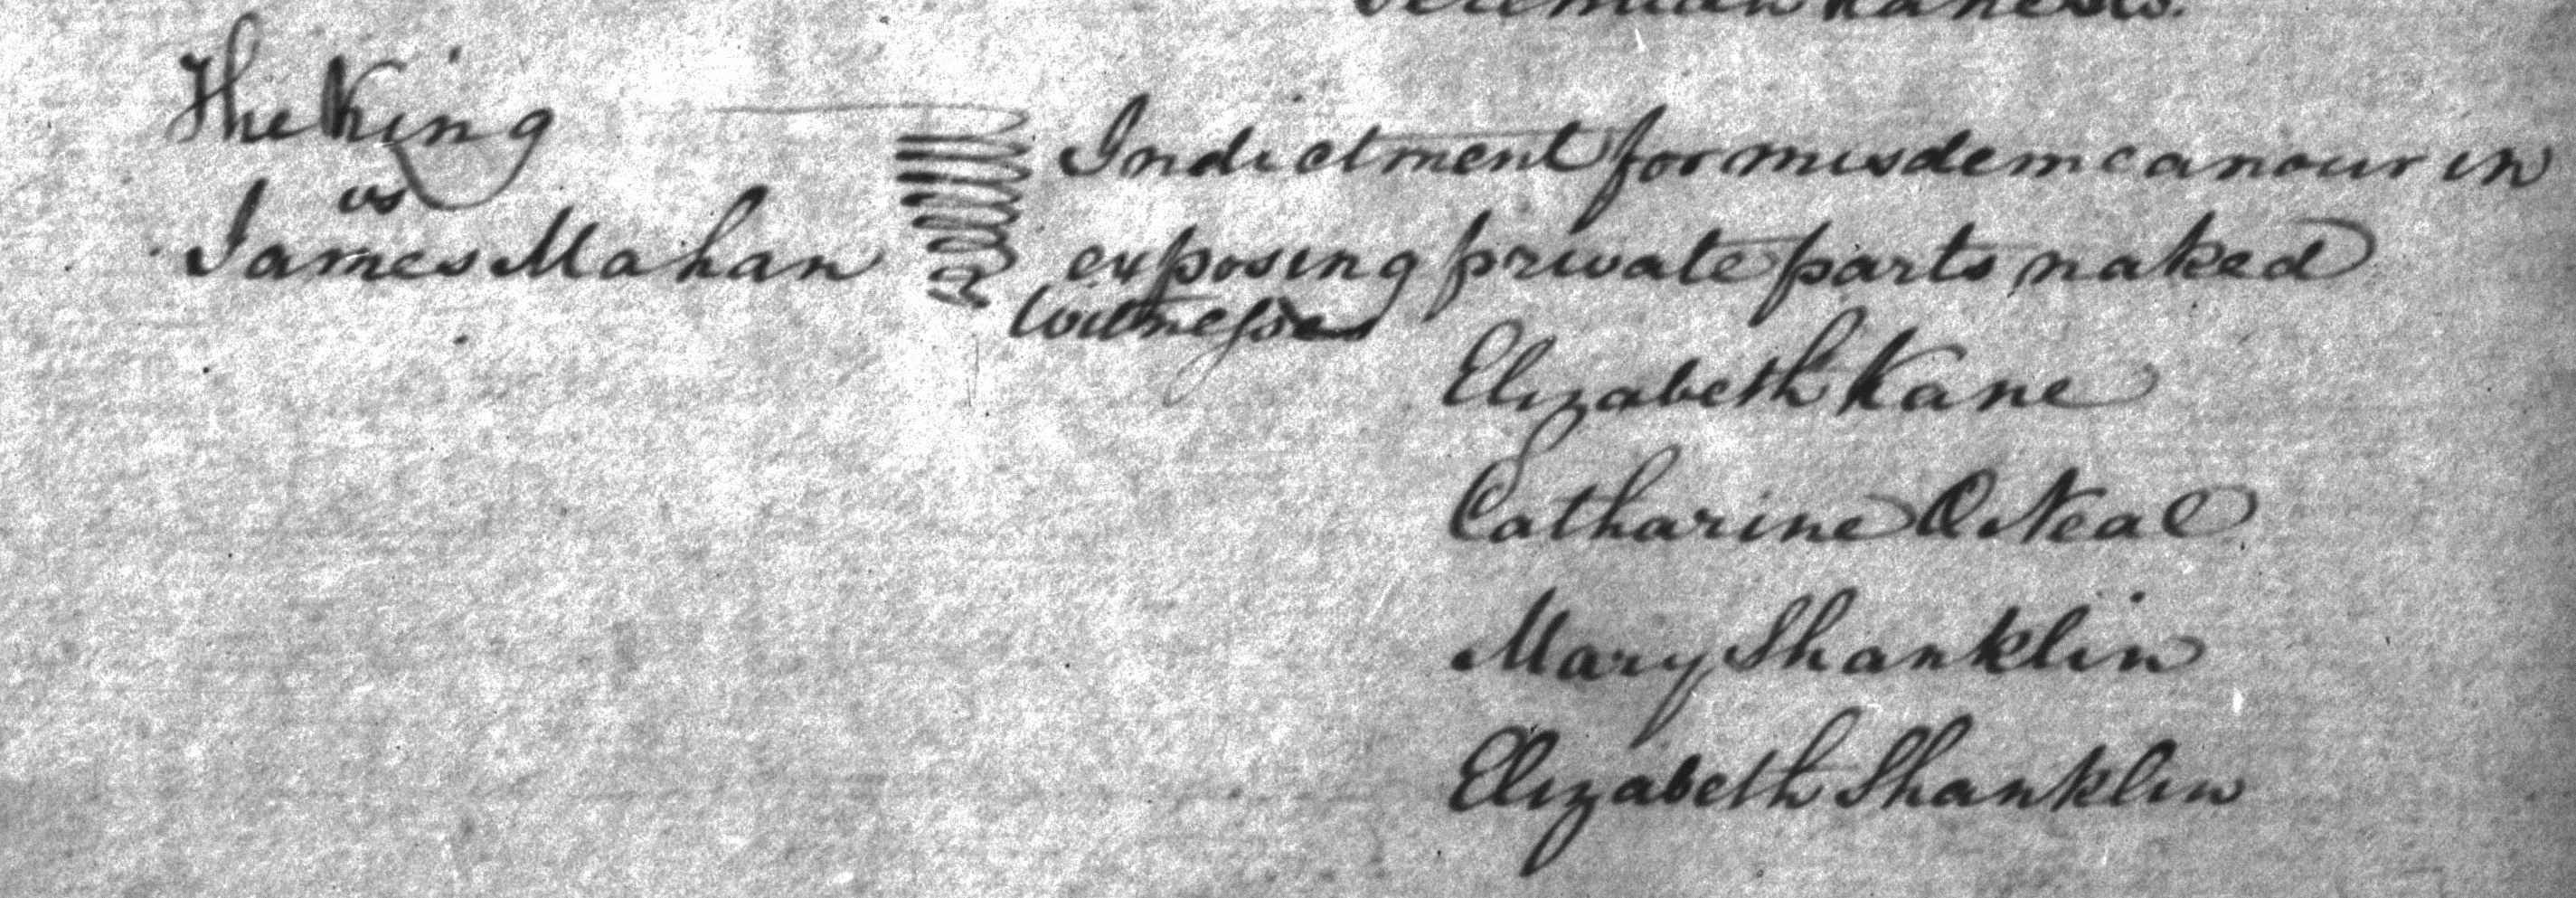 The King
vs
James Mahan
Indictment for misdemeanour in
exposing private parts naked
Witnesses
Elizabeth Kane
Catharine ONeal
Mary Shanklin
Elizabeth Shanklin